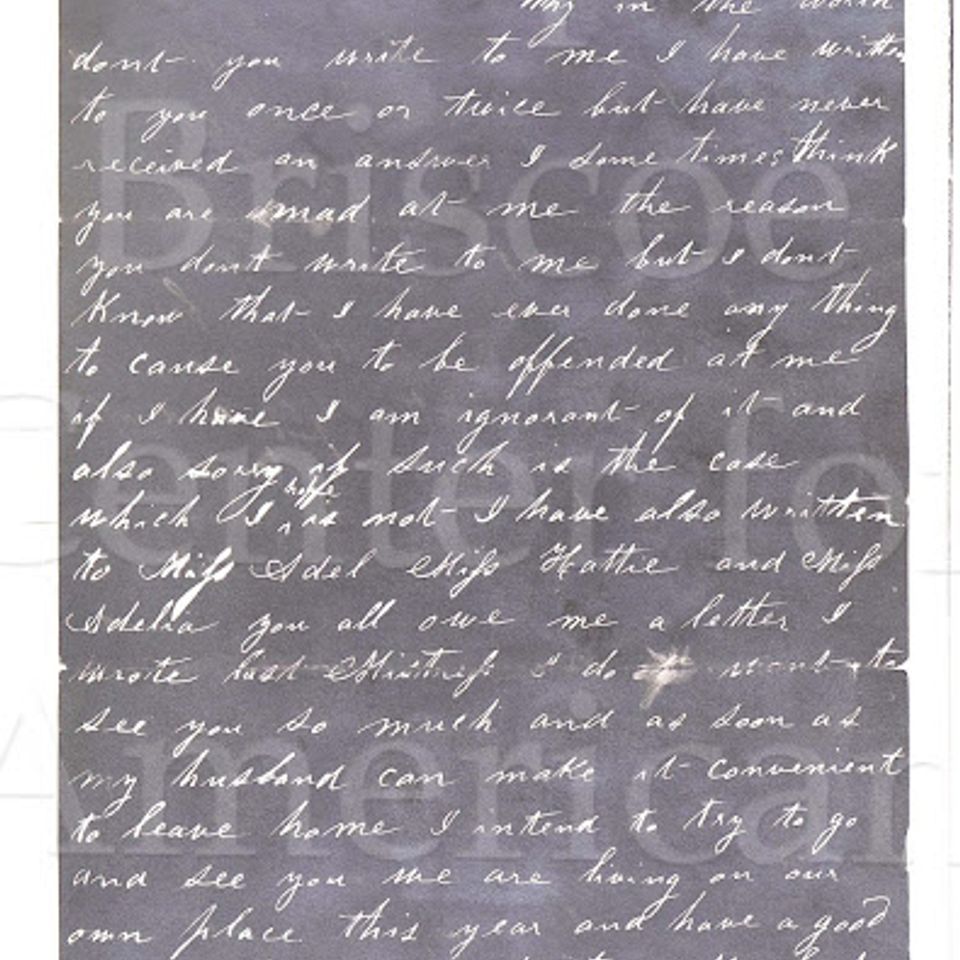 Why in the world
dont you write to me I have written
to you once or twice but have never
received an answer I some times think
you are mad at me the reason
you dont write to me but I dont
know that I have ever done any thing
to cause you to be offended at me
if I have I am ignorant of it and
also sorry if such is the case
which I hope is not I have also written
to Miss Adel Miss Hattie and Miss
Adelia you all owe me a letter I
wrote last Mistress I do want to
see you so much and as soon as
my husband can make it convenient
to leave home I intend to try to go
and see you we are living on our
own place this year and have a good
Briscoe
Center for
American